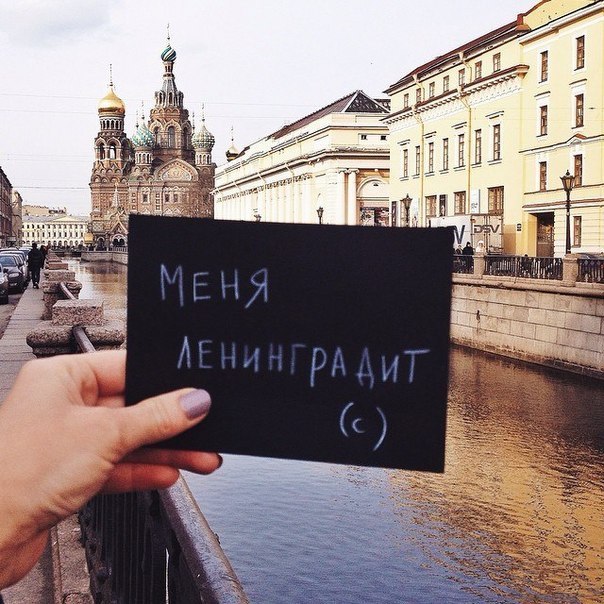 DSV
МЕНЯ
ЛЕНИНГРАДИТ
(с)